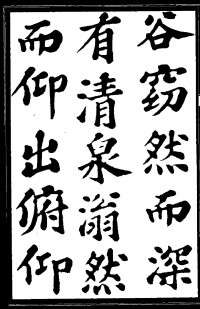 谷窈然而深
有清泉滃然
而仰出俯仰